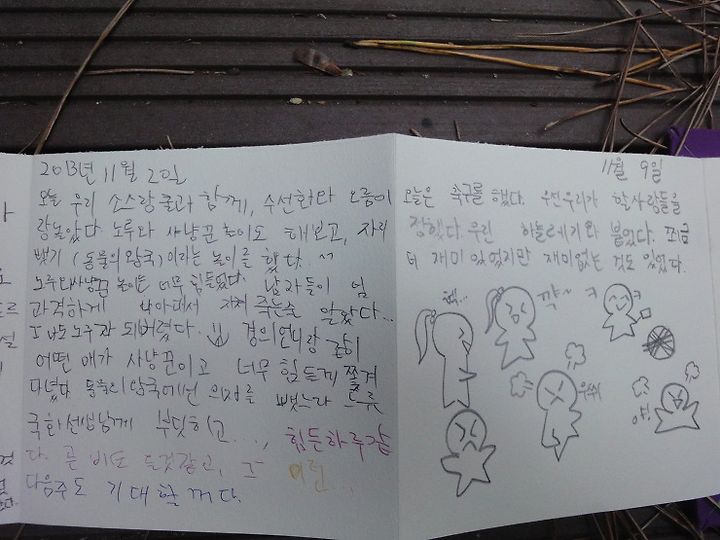 2013년 11월 2일
오늘 우리 소스랑 쿨과 함께, 수선화와
랑 놀았다. 노루와 사냥꾼 놀이도 해보고, 자리
뺏기 (동물의 왕국) 이라는 놀이를 했다. ~~
노루와 사냥꾼 놀이는 너무 힘들었다. 남자들이 넘
과격하게 해서 죽는줄 알았다...
노루가 되버렸다. 경의언니랑 같이
어떤 애가 사냥꾼이고 너무 힘들게 쫓겨
다녔다. 동물의 왕국에선 의자를 뺏느라
국화선생님께 부딪히고..., 힘든하루같
다. 곧 비도 올것같고, 이런...
다음주도 기대할꺼다.
11월 9일
오늘은 축구를 했다. 우선 우리가 할사람들을
정했다. 우린 하늘레기와 붙었다. 쪼금
더 재미 있었지만 재미없는 것도 있었다.
헥...
꺅~
ㅋ
ㅋ
우쒸
야!